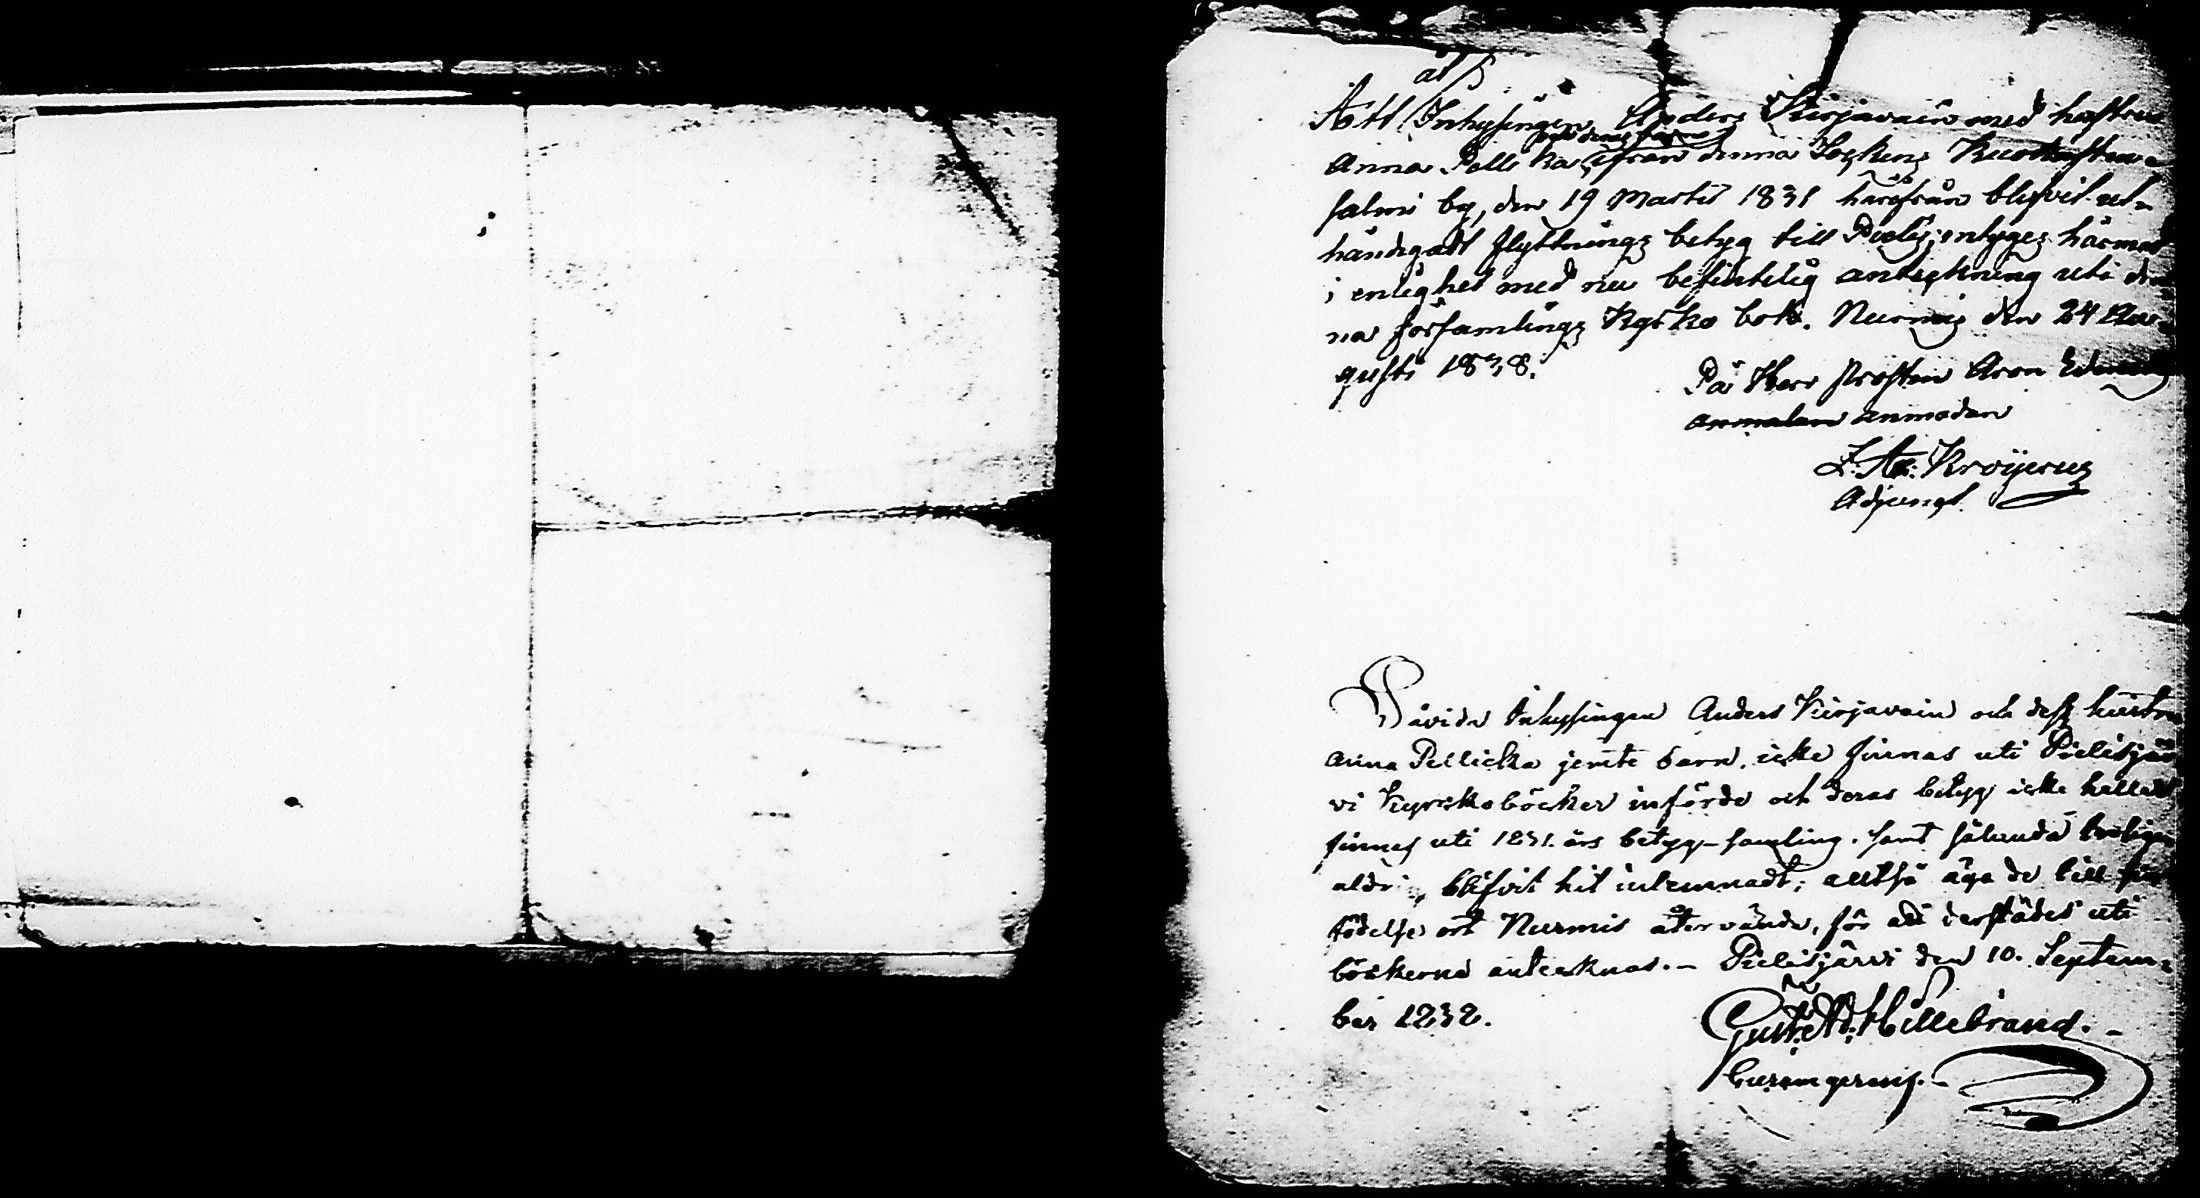 åt
Att Inhysingen Anders Kirjavain med hustru
Anna Pellika ifrån denna Sokens Kuokasten-
salmi by, den 19 Martii 1831 härifrån blifvit ut-
händigadt flyttnings betyg till Pielis; intygas härmed
i enlighet med nu befintelig anteckning uti den-
na församlings Kyrko bok. Nurmis den 24 Au-
gusti 1838.
På Herr Prosten Aron
anmodan
Z. Kroÿerus
Adjunct.
Såvida Inhysingen Anders Kirjavain och dess hustru
Anna Pellicka jemte barn, icke finnas uti Pielisjär
vi Kyrckoböcker införde och deras betyg icke hellre
finnes uti 1831. års betyg-samling. samt sålunda troligen
aldrig blifvit hit inlemnadt; alltså äga de till
födelse ort Nurmis återvända, för att derstädes uti
böckerna antecknas. - Pielisjärvi den 10. Septem-
ber 1838.
Gust. Ad. Hillebrand. -